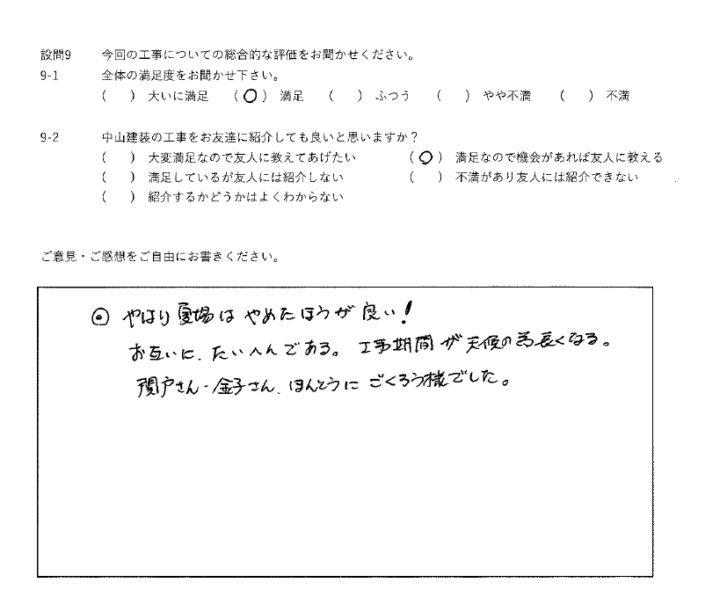 設問9 今回の工事についての総合的な評価をお聞かせください。
9-1 全体の満足度をお聞かせ下さい。
( ) 大いに満足 (○) 満足 ( ) ふつう ( ) やや不満 ( ) 不満
9-2 中山建装の工事をお友達に紹介しても良いと思いますか？
( ) 大変満足なので友人に教えてあげたい (○) 満足なので機会があれば友人に教える
( ) 満足しているが友人には紹介しない ( ) 不満があり友人には紹介できない
( ) 紹介するかどうかはよくわからない
ご意見・ご感想をご自由にお書きください。
◎ やはり夏場は やめたほうが 良い！
お互いに、たいへんである。工事期間が天候の為長くなる。
戸さん・金子さん、ほんとうに ごくろう様でした。